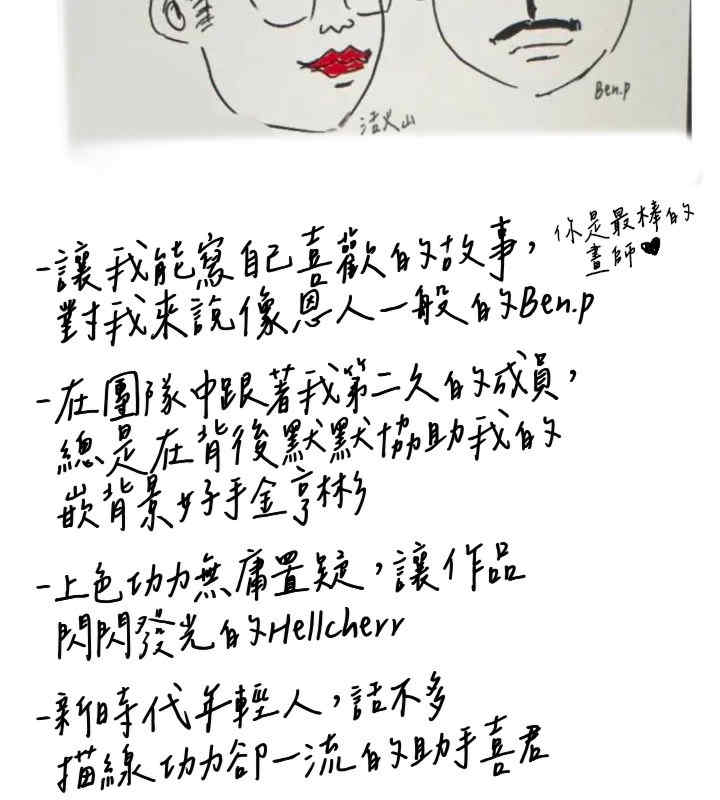 活火山
Ben.p
-讓我能寫自己喜歡的故事,
你是最棒的
畫師♥
對我來說像恩人一般的Ben.p
-在團隊中跟著我第二久的成員,
總是在背後默默協助我的
嵌背景好手金亨彬
-上色功力無庸置疑,讓作品
閃閃發光的Hellcherr
-新時代年輕人,話不多
描線功力卻一流的助手喜君